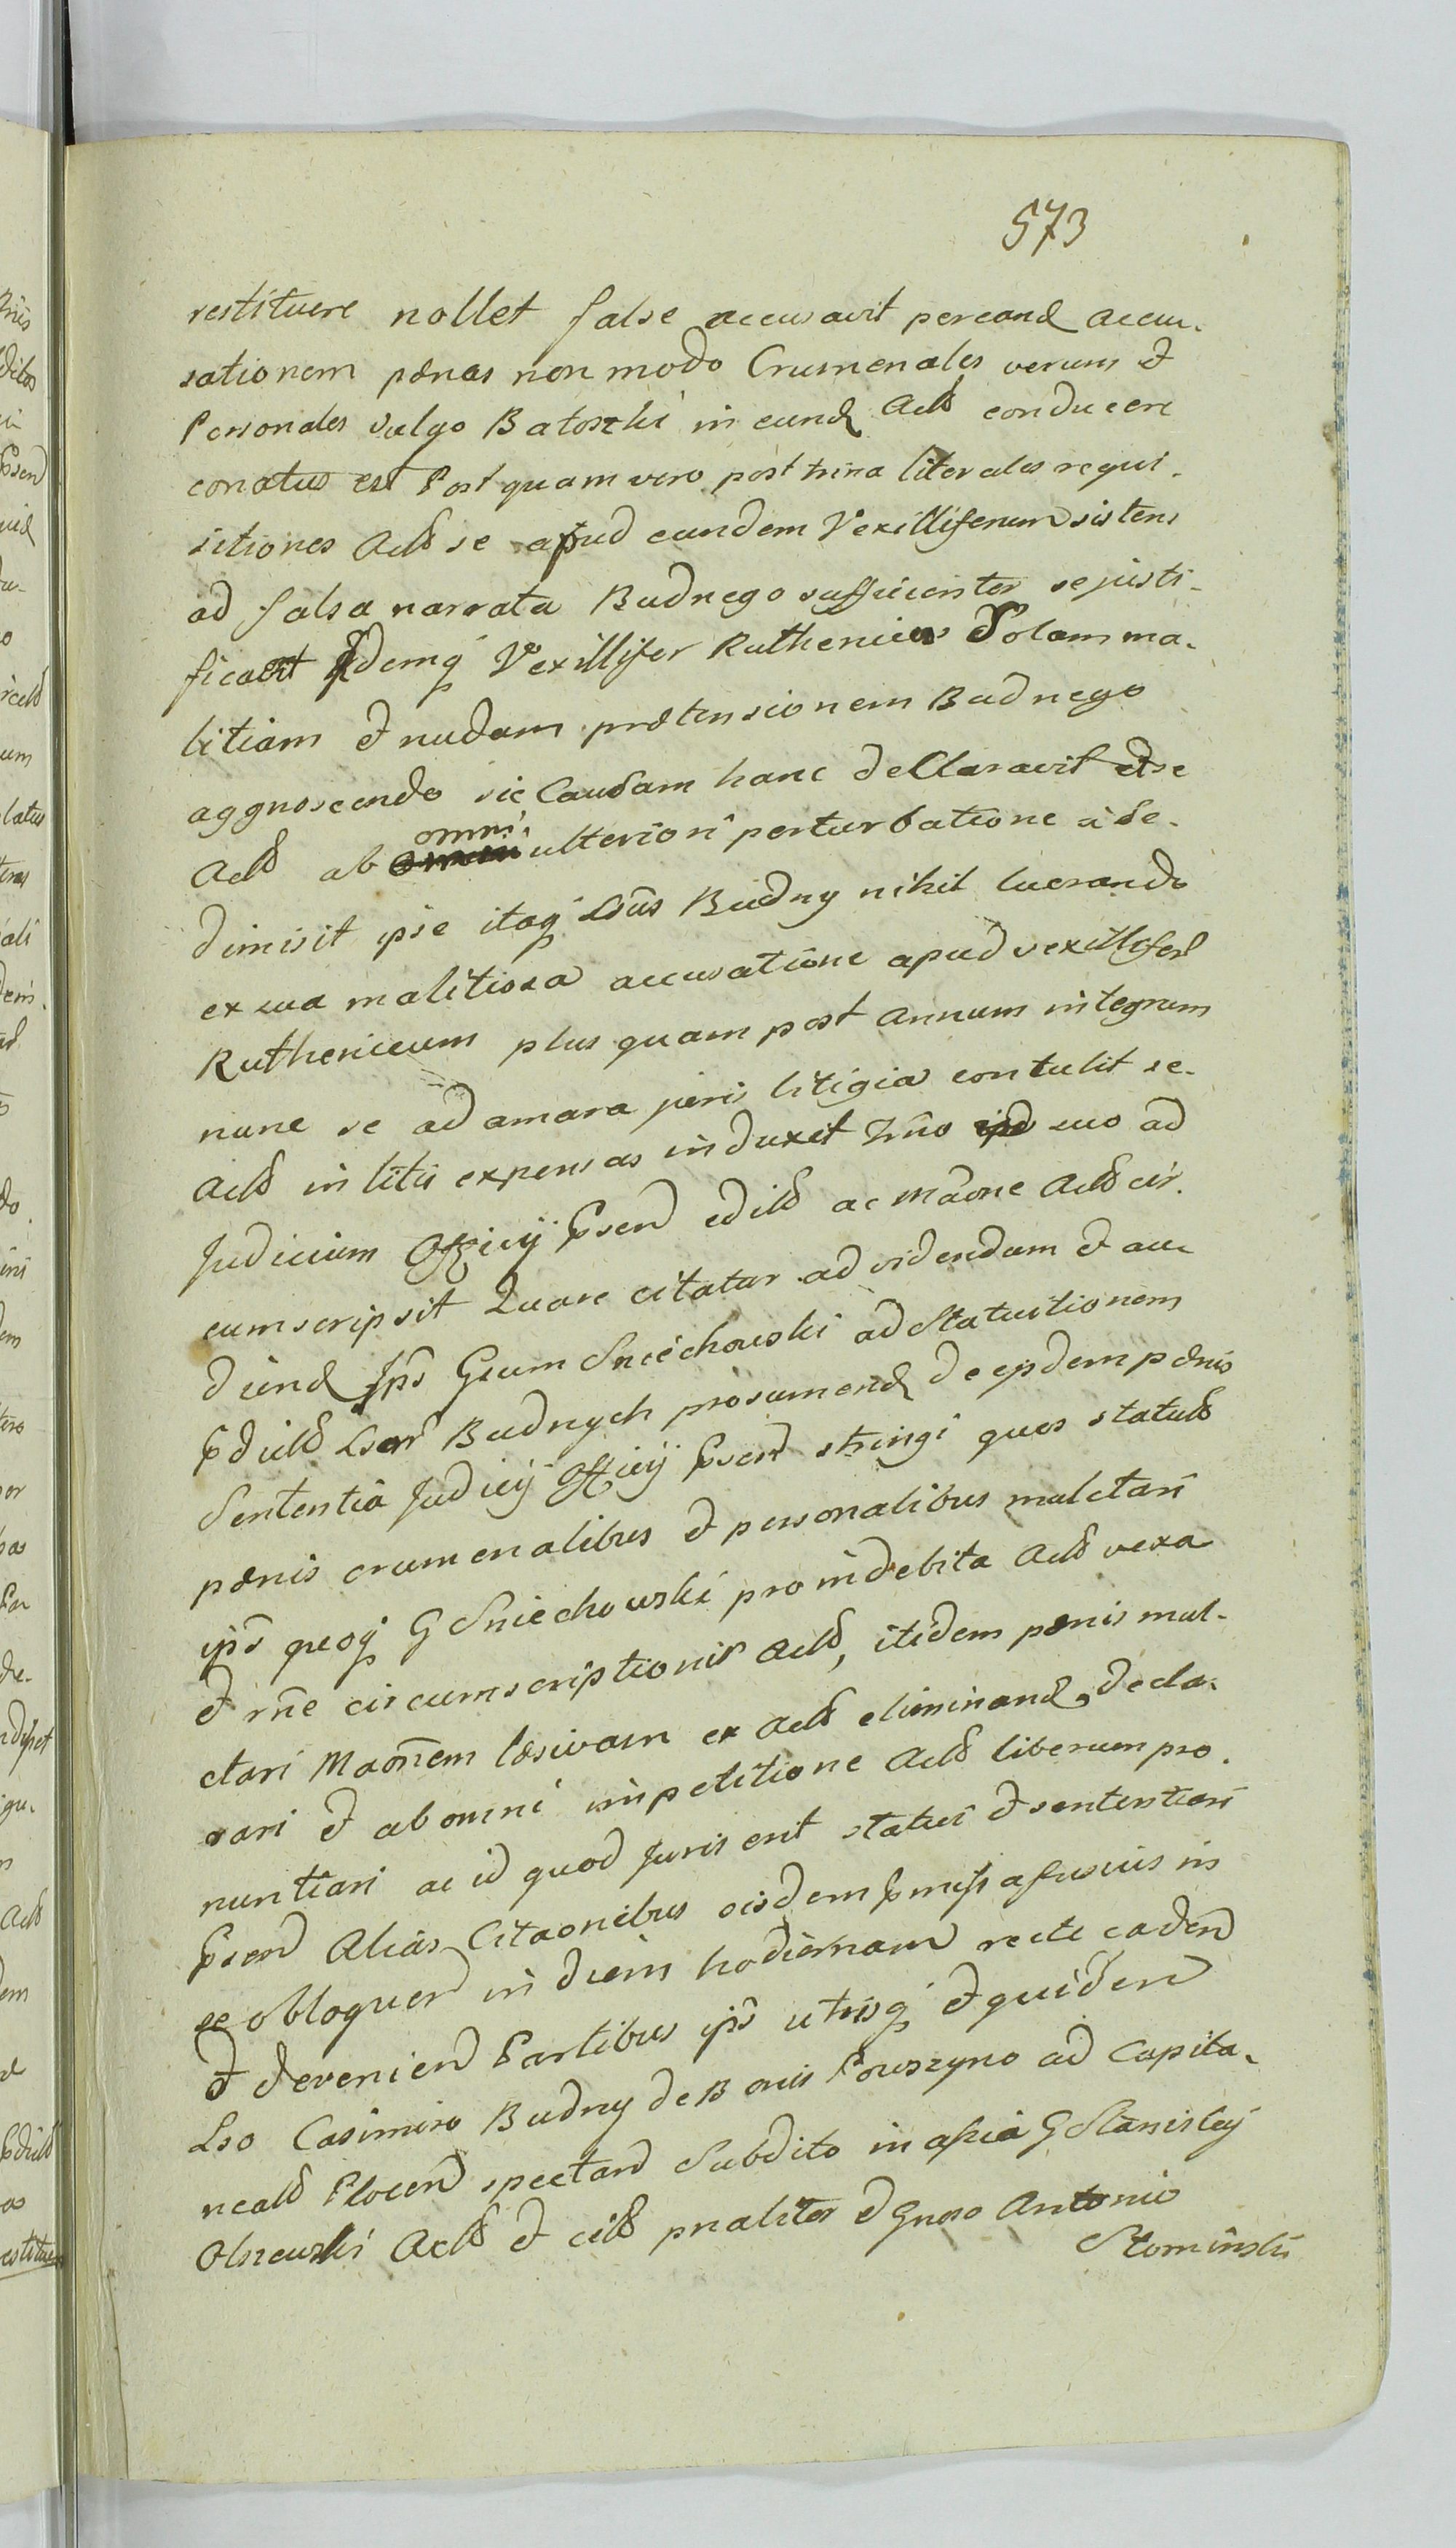 573
restituere nollet false accusavit pereand accu-
sationem pœnas non modo Crumenales verum et
Personales vulgo Batoszki in eund Actb conducere
conatus est Post quam vero post trina literales requi-
sitiones Actb se apud eundem Vexilliferum sistens
ad falsa narrata Budnego sufficienter se justi-
ficavit Idemq Vexillifer Ruthenicus Solam ma-
litiam et nudam prætensionem Budnego
aggnoscendo sic Causam hanc deClaravit et se
omni
Actb ab ulteriori perturbatione à se
dimisit ipse itaq Lsūs Budny nihil lucrando
ex sua malitiosa accusatione apud vexillifer
Ruthenicum plus quam post annum integrum
nunc se ad amara juris litigia contulit se
Actb in litis expensas induxit suo ad
Judicium Officij Psend edilb ac mãone Actb cir-
cumscripsit Quare citatur ad videndum et au-
diend Ips̄ Gsum Sniechowski ad Statuitionem
Lsor Budnych prosumend de ejsdem pœnis
Sententia Judicij Officij Psend stringi quos statutb
pœnis crumenalibus et personalibus mulctari
ips̄ quoq G Sniechowski pro indebita Actb vexa
et rñe circumscriptionis Actb, itidem pœnis mul-
ctari Maõnem læsivam ex Actb eliminand, decla-
rari et ab omni impetitione Actb liberum pro-
nuntiari ac id quod Juris erit statui et sententiari
Psend Alias Citaonibus eisdem pmissa fusius in
se obloquen in diem hodiernam recte caden
et devenien Partibus ips̄ utrisq et quidem
Lso Casimiro Budny de Bonis Pouszyno ad Capita-
nealb Plocen spectan Subdito in assia G Stanislai
Olszewski Actb et citb pnaliter et Gnoso Antonio
Stominski